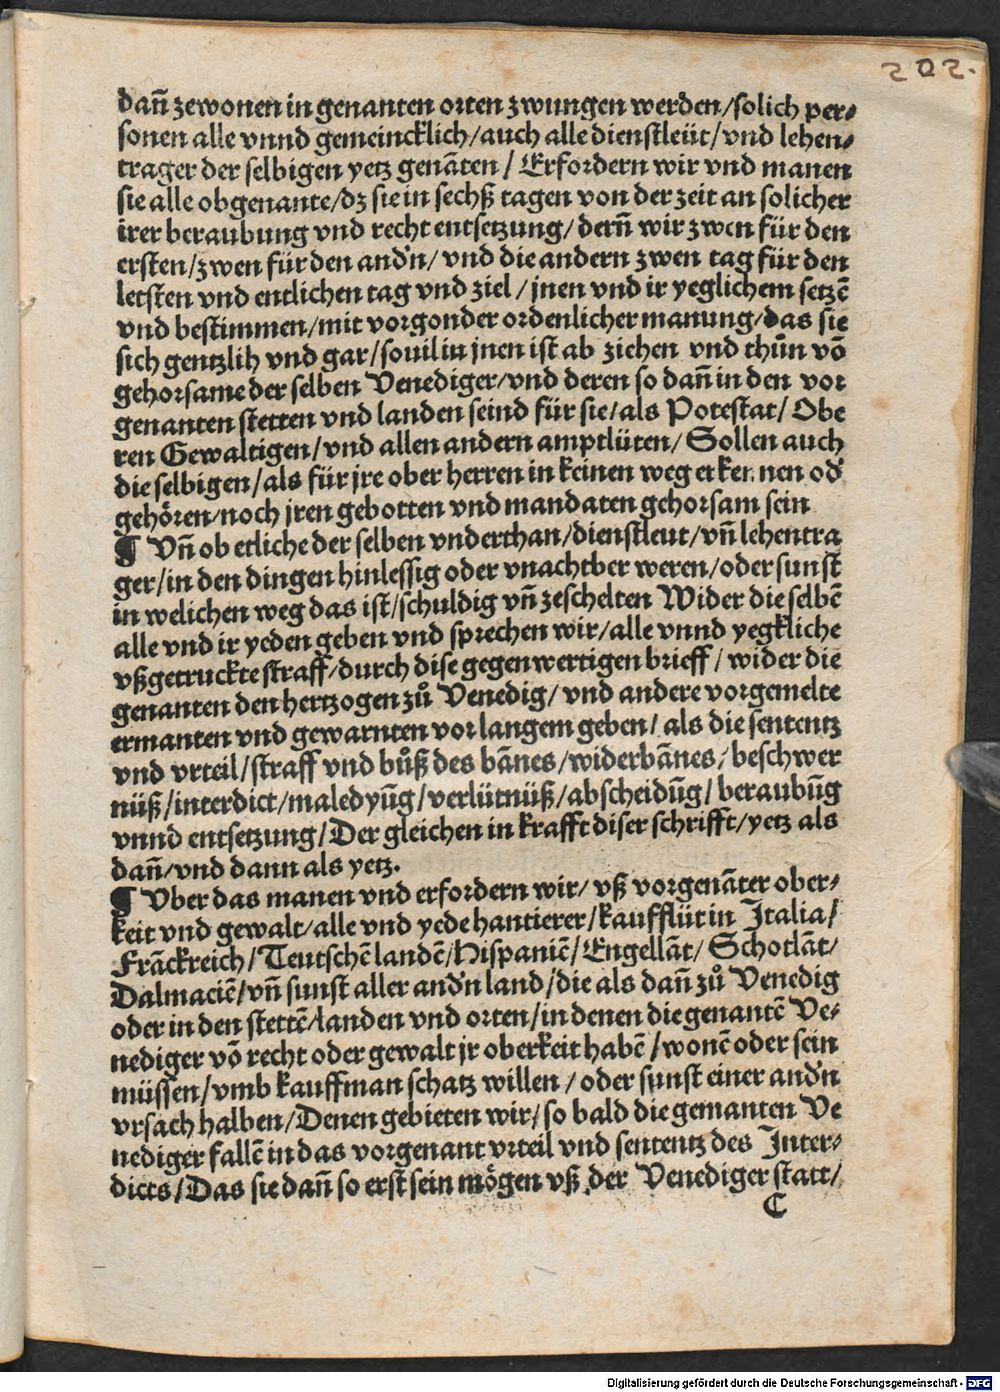 202.
dañ zewonen in genanten orten zwungen werden/solich per⸗
sonen alle vnnd gemeincklich/auch alle dienstleüt/vnd lehen⸗
trager der selbigen yetz genāten / Erfordern wir vnd manen
sie alle obgenante/dz sie in sechß tagen von der zeit an solicher
irer beraubung vnd recht entsetzung/ derñ wir zwen für den
ersten/zwen für den and'n/ vnd die andern zwen tag für den
letsten vnd entlichen tag vnd ziel / jnen vnd ir yeglichem setzē
vnd bestimmen/mit vorgonder ordenlicher manung/das sie
sich gentzlih vnd gar/souil in jnen ist ab ziehen vnd thůn vō
gehorsame der selben Venediger/vnd deren so dañ in den vor
genanten stetten vnd landen seind für sie/als Potestat/ Obe
ren Gewaltigen/vnd allen andern amptlüten/ Sollen auch
die selbigen/als für jre ober herren in keinen weg erkennen od'
gehören/noch jren gebotten vnd mandaten gehorsam sein
¶ Vñ ob etliche der selben vnderthan/dienstleut/vñ lehentra
ger/in den dingen hinlessig oder vnachtber weren/oder sunst
in welichen weg das ist/schuldig vñ zeschelten Wider die selbē
alle vnd ir yeden geben vnd sprechen wir/alle vnnd yegkliche
vßgetruckte straff/durch dise gegenwertigen brieff/ wider die
genanten den hertzogen zů Venedig/ vnd andere vorgemelte
ermanten vnd gewarnten vor langem geben/ als die sententz
vnd vrteil/straff vnd bůß des bānes/widerbānes/beschwer
nüß/interdict/maledyūg/verlütnüß/abscheidūg/ beraubūg
vnnd entsetzung/Der gleichen in krafft diser schrifft/yetz als
dañ/vnd dann als yetz.
¶ Vber das manen vnd erfordern wir/ vß vorgenāter ober⸗
keit vnd gewalt/alle vnd yede hantierer/kaufflüt in Italia/
Frāckreich/Teutschē landē/Hispaniē/Engellāt/ Schotlāt/
Dalmaciē/vñ sunst aller and'n land/die als dañ zů Venedig
oder in den stettē/landen vnd orten/in denen die genantē Ve⸗
nediger vō recht oder gewalt jr oberkeit habē /wonē oder sein
müssen/vmb kauffman schatz willen / oder sunst einer and'n
vrsach halben/Denen gebieten wir/so bald die gemanten Ve
nediger fallē in das vorgenant vrteil vnd sententz des Inter⸗
dicts/Das sie dañ so erst sein mögen vß der Venediger statt/
C
Digitalisierung gefördert durch die Deutsche Forschungsgemeinschaft - DFG